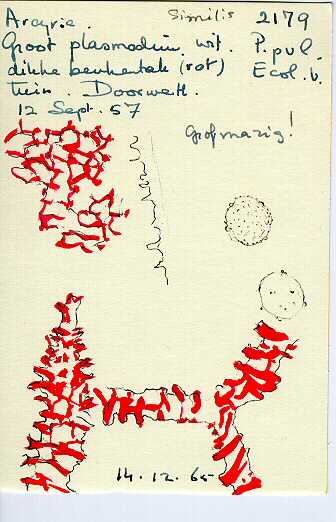 Arcyria. Similis 2179
Groot plasmodium. wit. P. pul.
dikke beukentak (rot) Ecol. v.
tuin. Doorwerth.
12 Sept. 57
Großmazig!
14.12.65